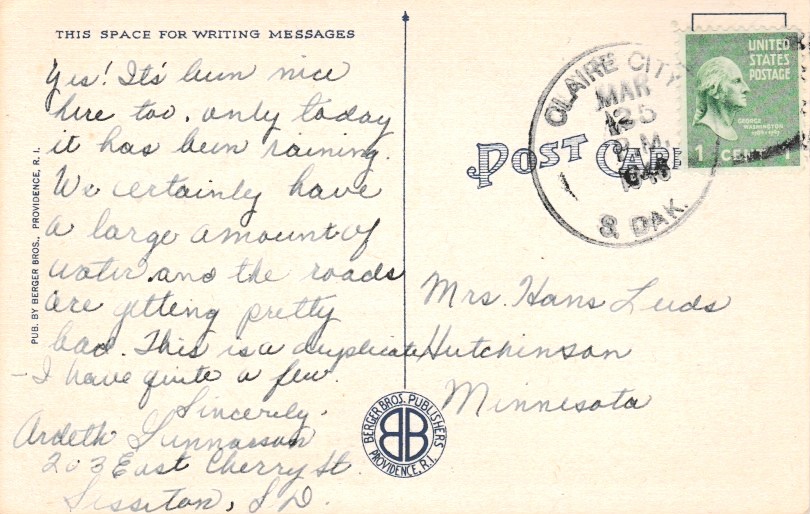 THIS SPACE FOR WRITING MESSAGES
Yes! It's been nice
here too. only today
it has been raining.
We certainly have
a large amount of
water and the roads
are getting pretty
bad. This is a duplicate
- I have quite a few.
Sincerely,
Ardeth
203 East Cherry St.
Sisseton, S.D.
PUB. BY BERGER BROS., PROVIDENCE, R. I.
POST CARD
CLAIRE CITY
MAR
25
P.M.
S. DAK.
UNITED
STATES
POSTAGE
GEORGE
WASHINGTON
1789-1797
1 CENT 1
Mrs. Hans Luds
Hutchinson
Minnesota
BERGER BROS. PUBLISHERS
BB
PROVIDENCE, R.I.